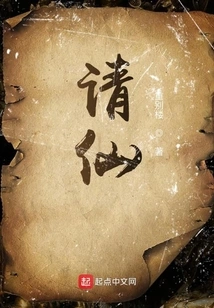 请仙
著
起点中文网